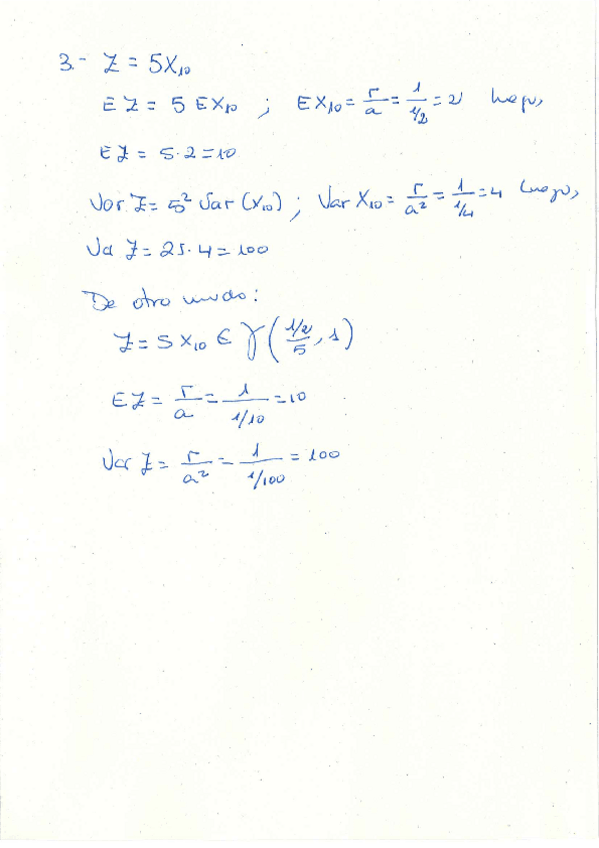 3.- Z = 5X₁₀
EZ = 5 EX₁₀ ; EX₁₀ = r/a = 1/(1/2) = 2 luego,
EZ = 5·2 = 10
Var Z = 5² Var (X₁₀) ; Var X₁₀ = r/a² = 1/(1/4) = 4 luego,
Va Z = 25·4 = 100
De otro modo:
Z = 5X₁₀ ∈ γ((1/2)/5, 1)
EZ = r/a = 1/(1/10) = 10
Var Z = r/a² = 1/(1/100) = 100